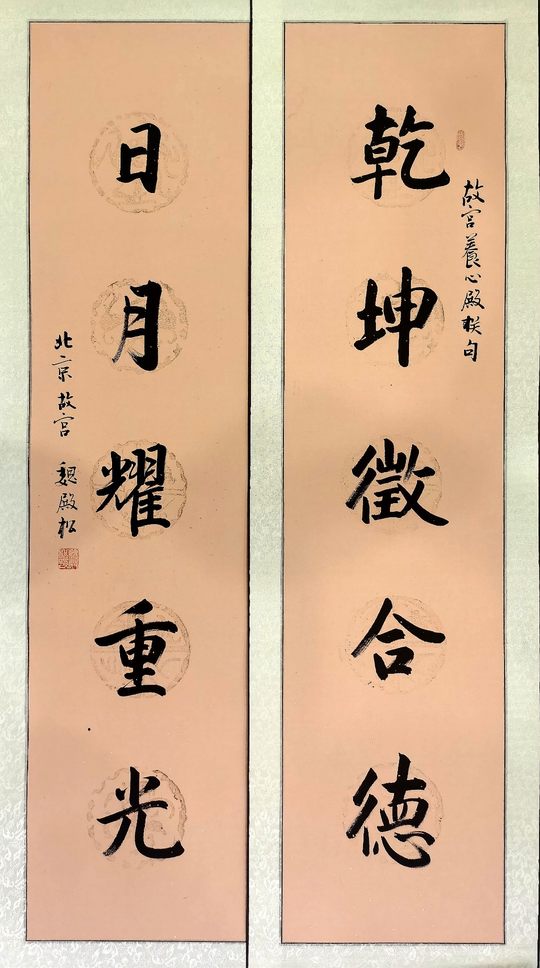 故宫養心殿联句
乾坤徵合德
日月耀重光
北京故宫 魏殿松